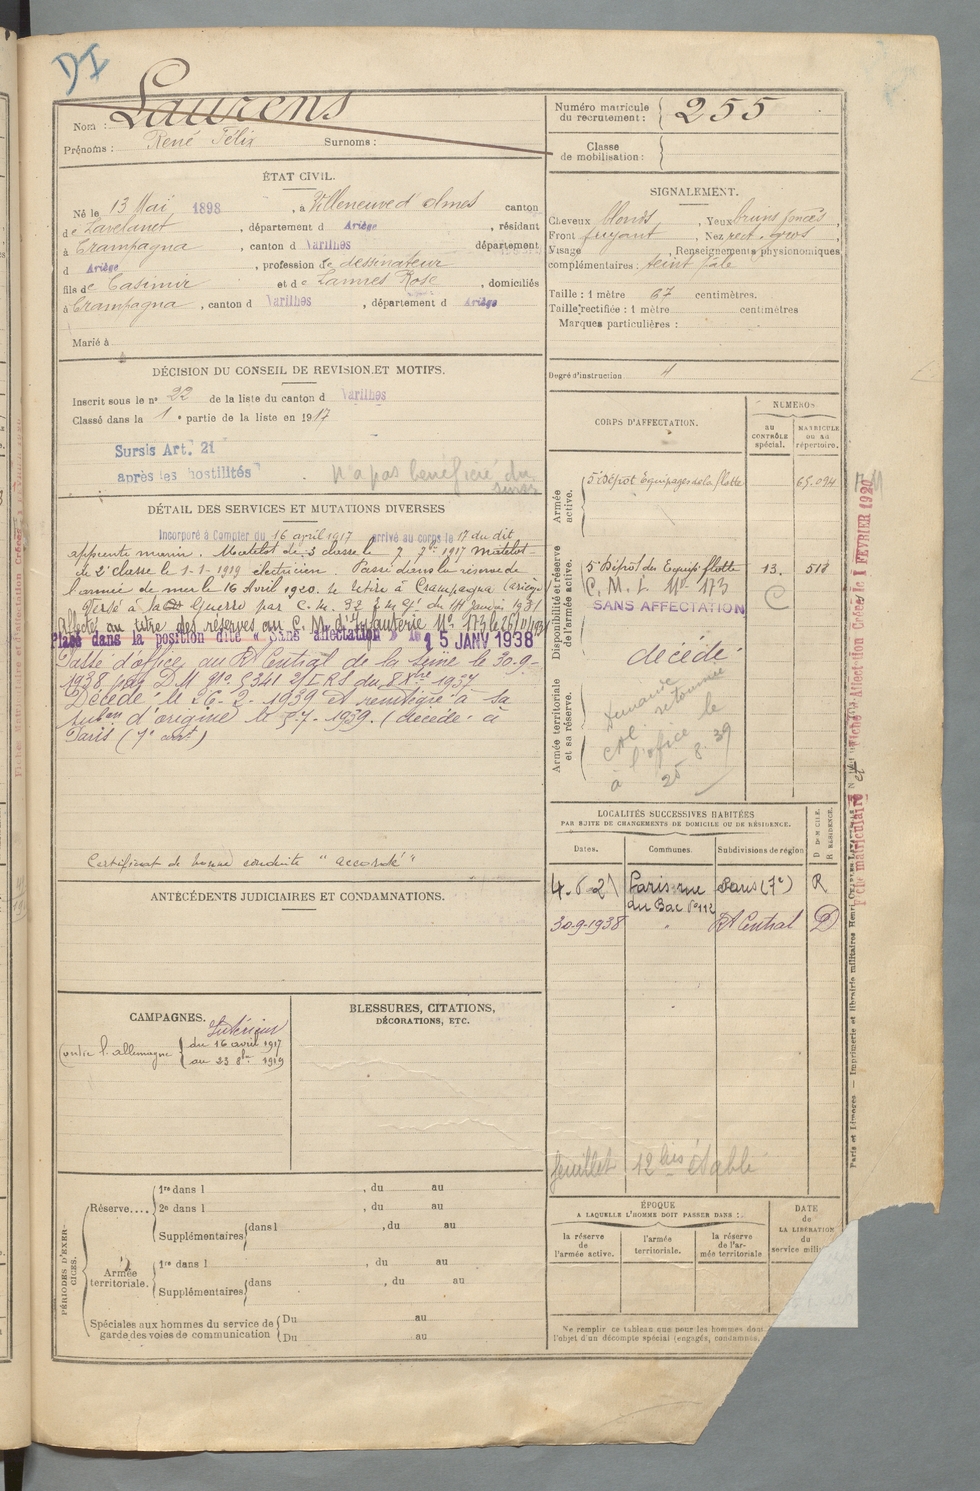 DI
Nom : Laurens
Prénoms : René Félix Surnoms :
Numéro matricule du recrutement : 255
Classe de mobilisation :
ÉTAT CIVIL.
Né le 13 Mai 1898, à Villeneuve d'Olmes canton
de Lavelanet, département d Ariège, résidant
à Crampagna, canton d Varilhes département
d Ariège, profession de dessinateur
fils de Casimir et de Lannes Rose, domiciliés
à Crampagna, canton d Varilhes, département d Ariège
Marié à
SIGNALEMENT.
Cheveux blonds, Yeux bruns foncés
Front fuyant, Nez rect. gros,
Visage , Renseignements physionomiques
complémentaires : teint pâle
Taille : 1 mètre 67 centimètres.
Taille rectifiée : 1 mètre centimètres
Marques particulières :
Degré d'instruction 4
DÉCISION DU CONSEIL DE REVISION ET MOTIFS.
Inscrit sous le n° 22 de la liste du canton d Varilhes
Classé dans la 1e partie de la liste en 1917
Sursis Art. 21
après les hostilités n'a pas bénéficié du
sursis
DÉTAIL DES SERVICES ET MUTATIONS DIVERSES
Incorporé à Compter du 16 avril 1917 arrivé au corps le 17 du dit
apprenti marin. Matelot de 3 classe le 7 7bre 1917 Matelot
de 2e classe le 1-1-1919 électricien. Passé dans la réserve de
l'armée de mer le 16 Avril 1920. se retire à Crampagna (Ariège)
Versé à la Guerre par C. M. du 14 Janvier 1931
Affecté au titre des réserves au C. M. d'Infanterie N° 173 le 26/01/1931
Placé dans la position dite « Sans affectation » le 15 JANV 1938
Passé d'office au Rt Central de la Seine le 30-9-
1938 par DM N° 8241 2/IRS du 8 1937
Décédé le 26-2-1939 et réintégré à sa
subon d'origine le 5-7-1939. (décédé à
Paris (7e arrt)
Certificat de bonne conduite "accordé"
CORPS D'AFFECTATION.
NUMÉROS
AU CONTRÔLE spécial.
MATRICULE ou au répertoire.
Armée active.
5e Dépôt Equipages de la flotte 65.094
Disponibilité et réserve de l'armée active.
5e Dépôt du Equip. flotte 13. 518
C. M. I. N° 173 C
SANS AFFECTATION
décédé
Armée territoriale et sa réserve.
Demande
CAL retournée
à l'office le
25.8.39
LOCALITÉS SUCCESSIVES HABITÉES
PAR SUITE DE CHANGEMENTS DE DOMICILE OU DE RÉSIDENCE.
Dates. Communes. Subdivisions de région D. DOMICILE. R. RÉSIDENCE.
4.6.21 Paris rue du Bac N°112 Paris (7e) R
30-9-1938 " Rt Central D
feuillet 12 bis établi
ANTÉCÉDENTS JUDICIAIRES ET CONDAMNATIONS.
CAMPAGNES.
Intérieur
Contre l'allemagne du 16 avril 1917
au 23 8bre 1919
BLESSURES, CITATIONS,
DÉCORATIONS, ETC.
PÉRIODES D'EXERCICES.
Réserve....
1re dans l , du au
2e dans l , du au
Supplémentaires dans l , du au
Armée territoriale.
1re dans l , du au
Supplémentaires dans , du au
Spéciales aux hommes du service de garde des voies de communication
Du au
Du au
ÉPOQUE
A LAQUELLE L'HOMME DOIT PASSER DANS :
la réserve de l'armée active.
l'armée territoriale.
la réserve de l'armée territoriale
DATE de LA LIBÉRATION du service mili
Ne remplir ce tableau que pour les hommes dont
l'objet d'un décompte spécial (engagés, condamnés,
Fche matriculaire et Fiche d'Affectation Créées le 1 FEVRIER 1920
Paris et Limoges — Imprimerie et librairie militaires Henri Charles-Lavauzelle